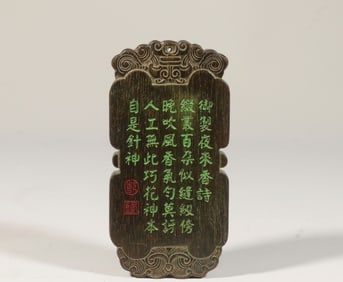 御製夜來香詩
綴叢百朵似縫紉傍
晚吹風香氣勻莫訝
人工無此巧花神本
自是針神